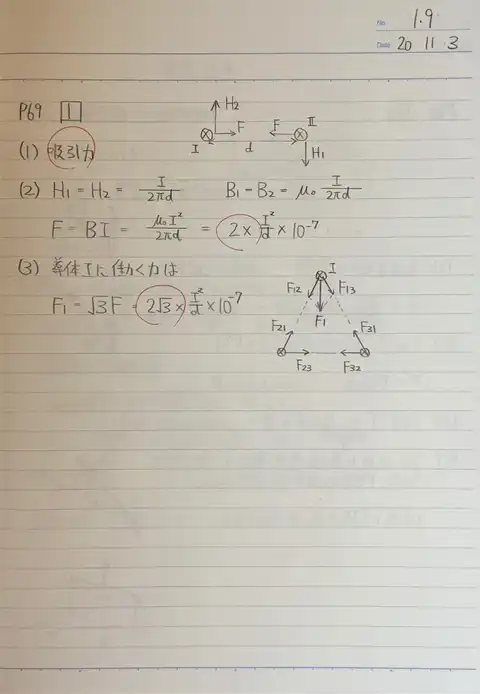 No. 1.9
Date 20 11 3
P69 1
H2
F F II
I d
H1
(1) 吸引力
(2) H1 = H2 = I/2πd B1 = B2 = μ0 I/2πd
F = BI = μ0I²/2πd = 2 × I²/d × 10⁻⁷
(3) 導体Iに働く力は
F1 = √3F = 2√3 × I²/d × 10⁻⁷
I
F12 F13
F1
F21 F31
F23 F32